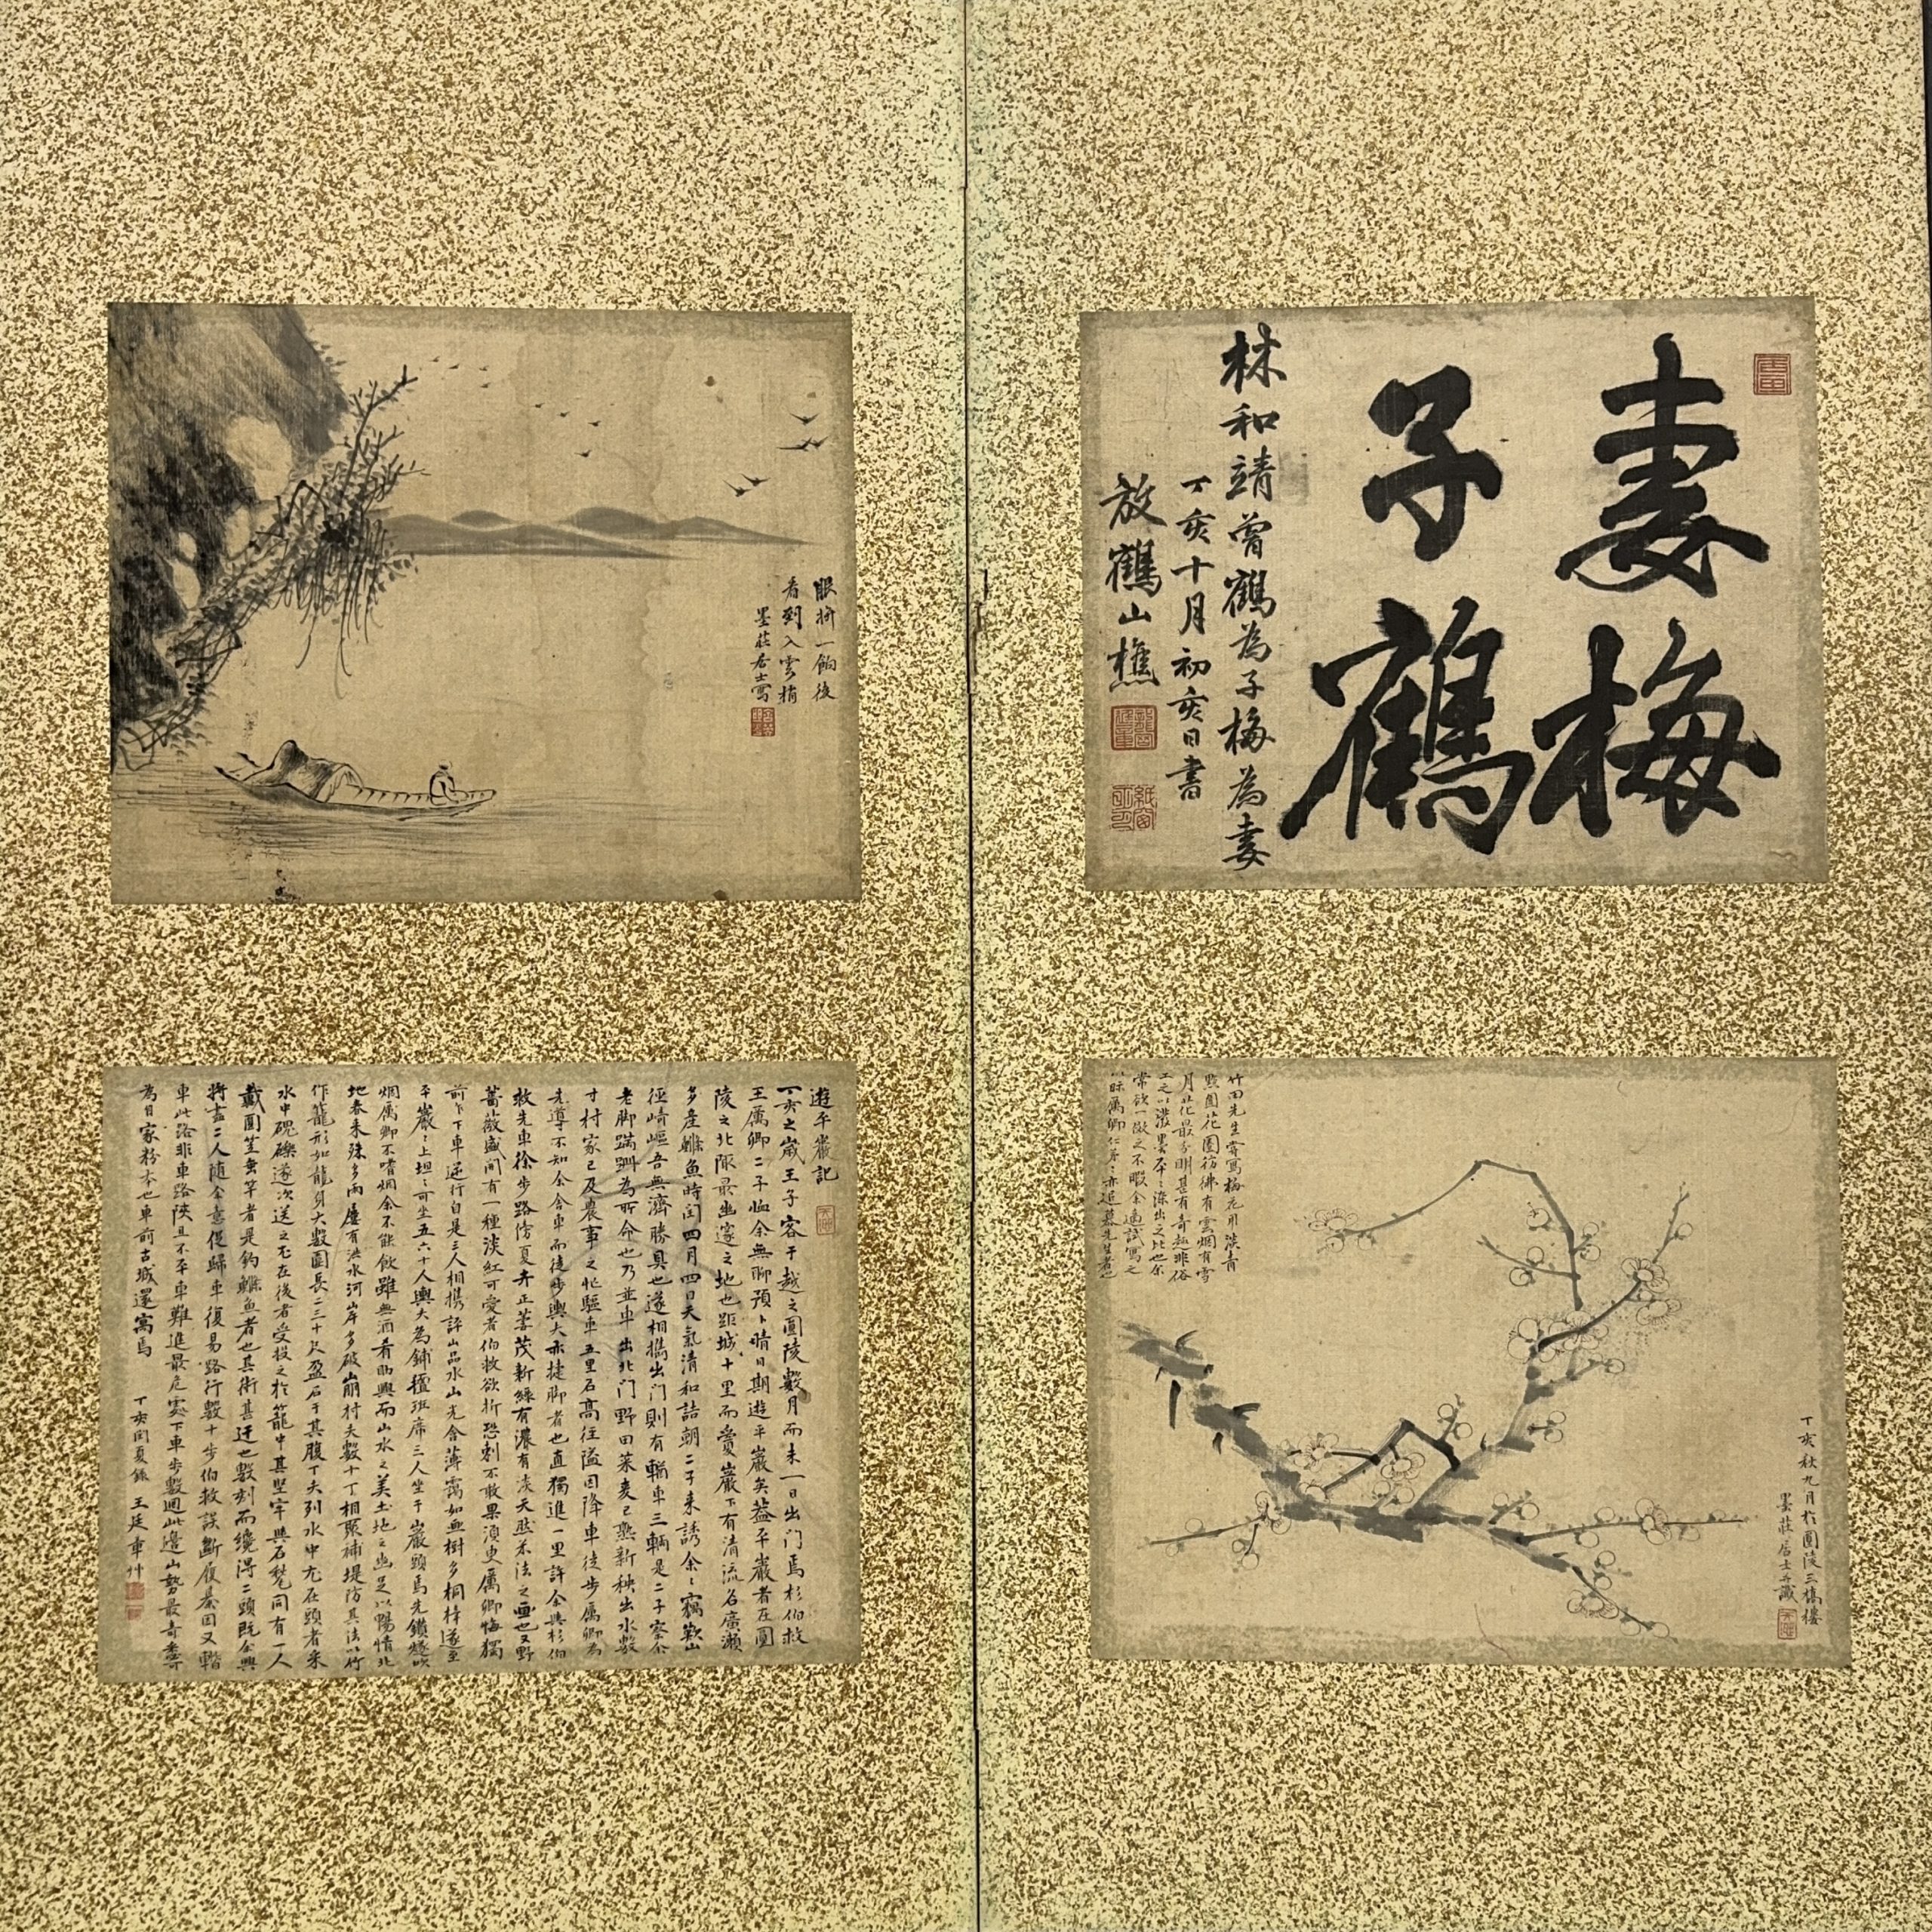 妻梅
子鶴
林和靖曽鶴為子梅為妻
丁亥十月初亥日書
放鶴山樵
竹田先生嘗寫梅花用淡青
點圈花圈彷彿有雲烟有雪
月花最分明甚有奇趣非俗
常欲一倣之不暇余適試寫之
丁亥秋九月於圓陵三橋樓
墨莊居士并識
眼揩一餉後
看到入雲梢
墨莊居士寫
遊平巖記
丁亥之歲王子客于越之圓陵數月而未一日出門焉杉伯救
王厲卿二子恤余無聊預卜晴日期遊平巖矣蓋平巖者在圓
陵之北陬最幽邃之地也距城十里而寔巖下有清流名廣瀬
多產鱲魚時閏四月四日天氣清和詰朝二子來誘余余竊歎山
徑崎嶇吾無濟勝具也遂相携出門則有輛車三輌是二子察余
老脚蹣跚為所命也乃並車出北門野田菜麦已熟新秧出水數
寸村家已及農事之忙驅車五里石高往隘因降車徒步厲卿為
先導不知余舍車而徒步輿夫亦捷脚者也直獨進一里許余與杉伯
救先車徐步路傍夏卉正蕃茂新綠有濃有淡天然米法之画也又野
薔薇盛開有一種淡紅可愛者伯救欲折恐刺不敢果須臾厲卿悔獨
前乍下車逆行自是三人相携評山品水山光含薄靄如無樹多桐梓遂至
平巖巖上坦坦可坐五六十人輿夫為鋪氊班席三人坐于巖頭焉先鑽燧吹
烟厲卿不嗜烟余不能飲雖無酒肴助興而山水之美土地之幽足以暢情北
地春來殊多雨屢有洪水河岸多破崩村夫數十丁相聚補堤防其法以竹
作籠形如龍身大數圍長二三十尺盈石于其腹丁夫列水中尤在頭者采
水中磈礫遂次送之至在後者受投之於籠中其堅牢與石甃同有一人
戴圓笠垂竿者是釣鱲魚者也其術甚迂也數刻而纔得二頭既余興
將盡二人隨余意促歸車復易路行數十步伯救誤斷履綦因又輪
車此路非車路陜且不平車難進最危处下車步數四此邊山勢最奇盡可
為目家粉本也車前古城還寓焉
丁亥閏夏錄 王廷章艸